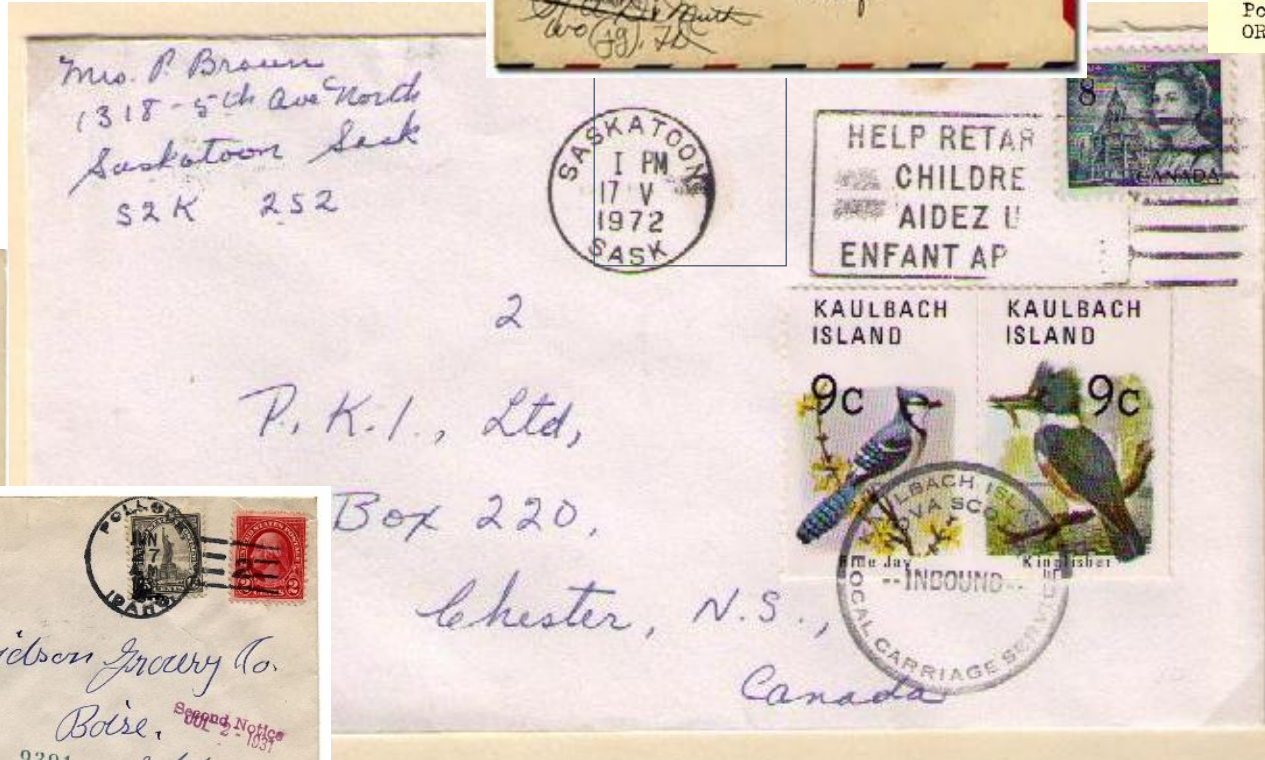 (jg),
Po
OR
Mrs. P. Brown
1318 - 5th Ave North
Saskatoon Sask
S2K 2S2
SASKATOON
1 PM
17 V
1972
SASK
HELP RETAR
CHILDRE
AIDEZ U
ENFANT AP
8
CANADA
2
P.K.I., Ltd,
Box 220,
Chester, N.S.,
Canada
KAULBACH ISLAND
9c
Blue Jay
KAULBACH ISLAND
9c
Kingfisher
LBACH ISL
OVA SCO
--INBOUND--
LOCAL CARRIAGE SERVICE
POLLOCK
7
IDAHO
UNITED STATES POSTAGE
2
idson Grocery Co.
Boise,
Second Notice
JUL 2 - 1931